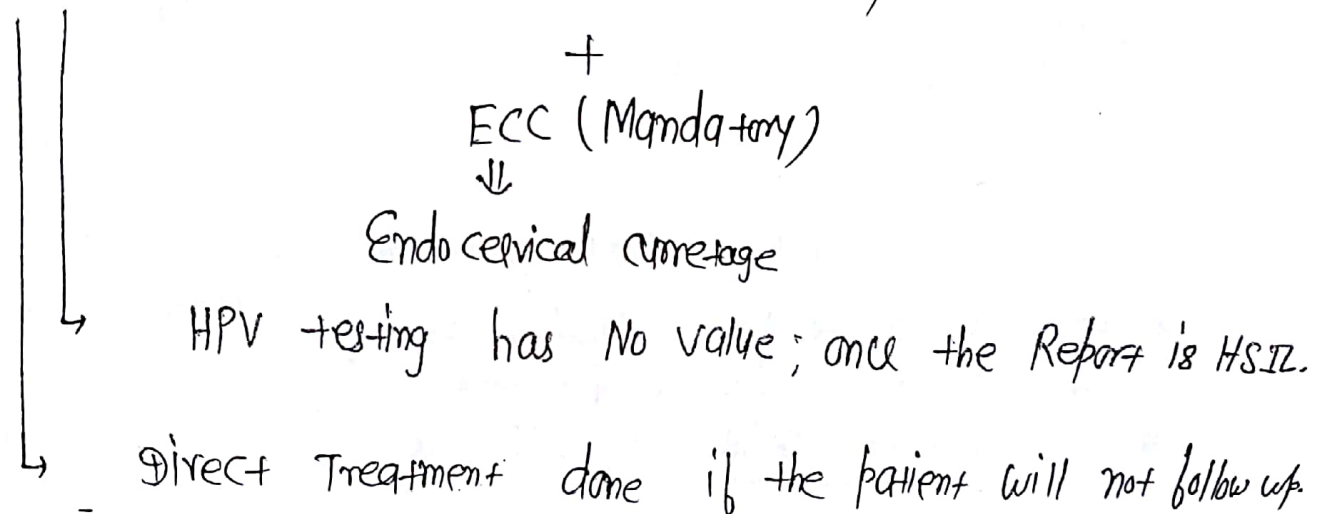 +
ECC (Mandatory)
⇓
Endo cervical curretage
↳ HPV testing has No value; once the Report is HSIL.
↳ Direct Treatment done if the patient will not follow up.